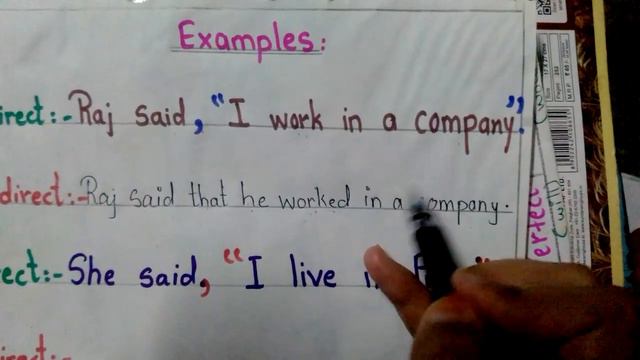 Examples:
irect:- Raj said, "I work in a company".
direct:- Raj said that he worked in a company.
ect:- She said, "I live